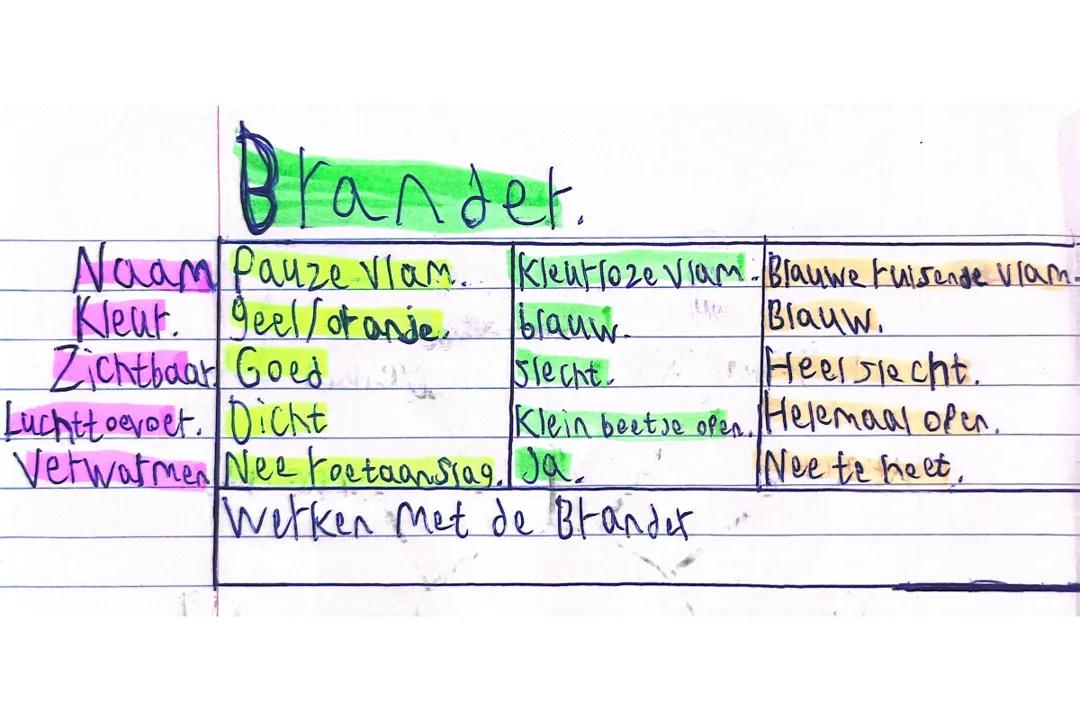 Brander.
Naam Pauze vlam. Kleurloze vlam. Blauwe ruisende vlam.
Kleur. geel/oranje. blauw. Blauw.
Zichtbaar Goed slecht. Heel slecht.
Luchttoevoer. Dicht Klein beetje open. Helemaal open.
Verwarmen Nee roetaanslag. Ja. Nee te heet.
Werken Met de Brander